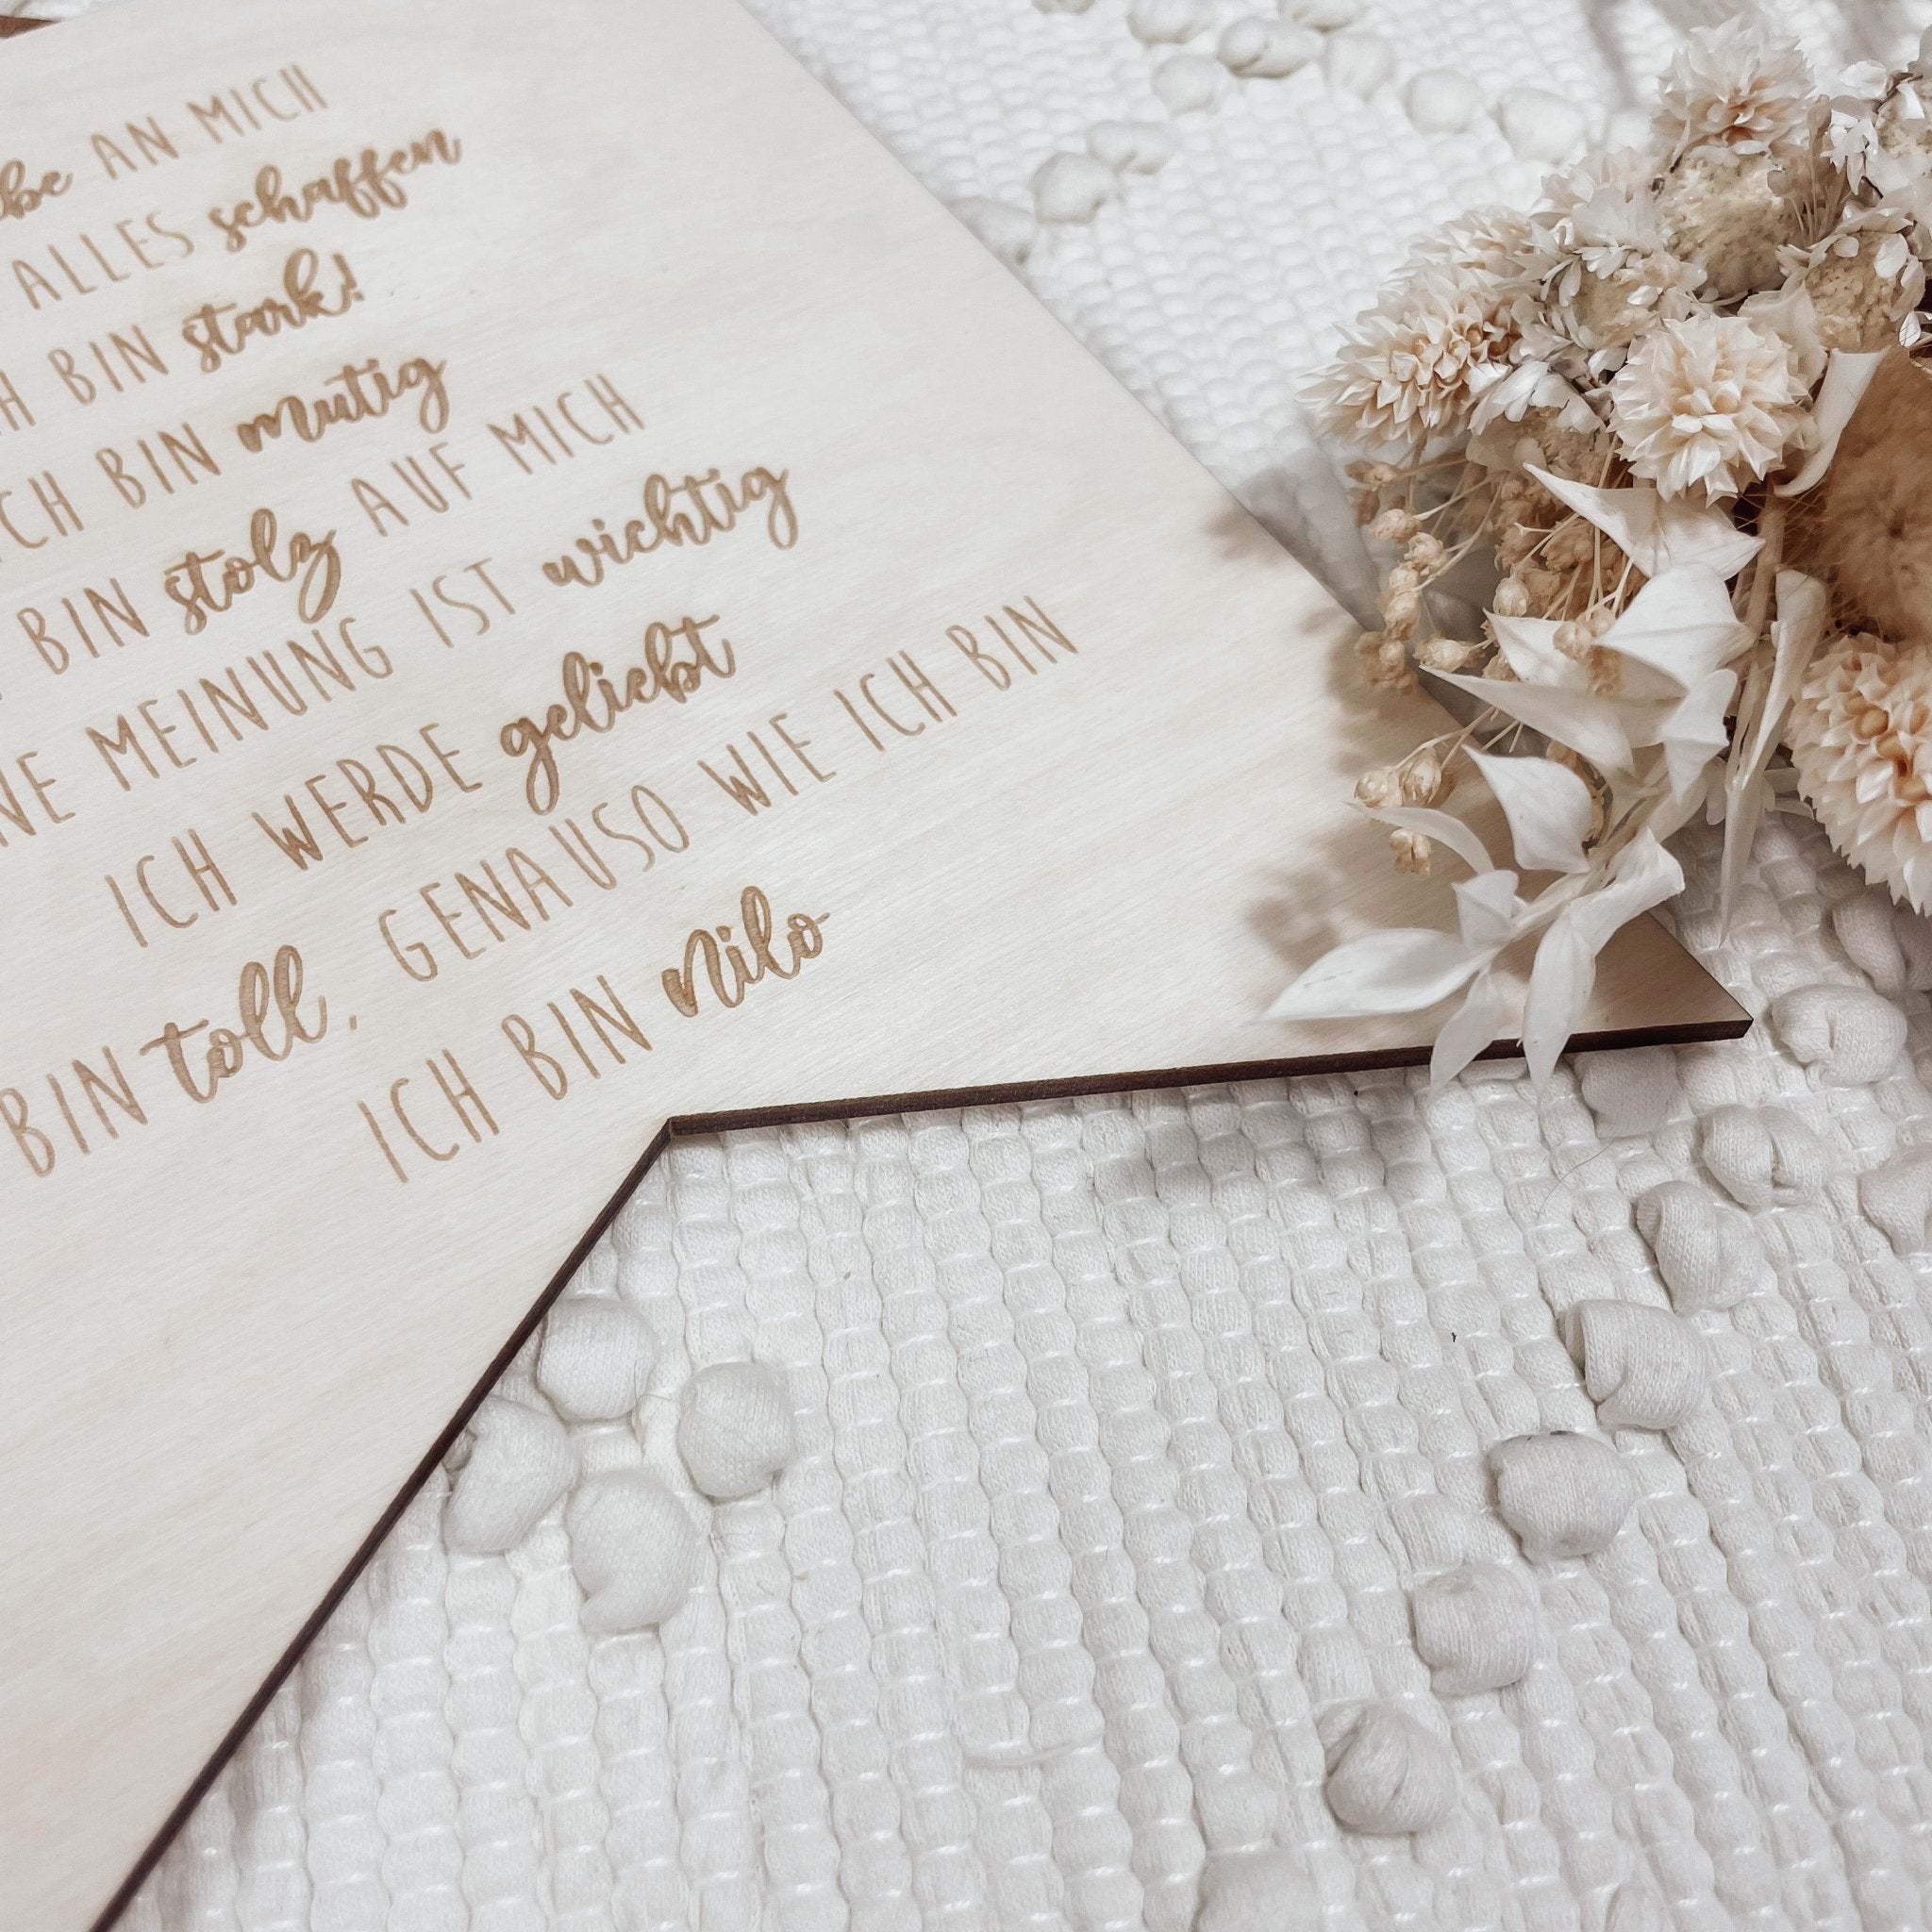 AN MICH
ALLES schaffen
BIN stark!
ICH BIN mutig
BIN stolz AUF MICH
MEINUNG IST wichtig
ICH WERDE geliebt
BIN toll, GENAUSO WIE ICH BIN
ICH BIN Nilo